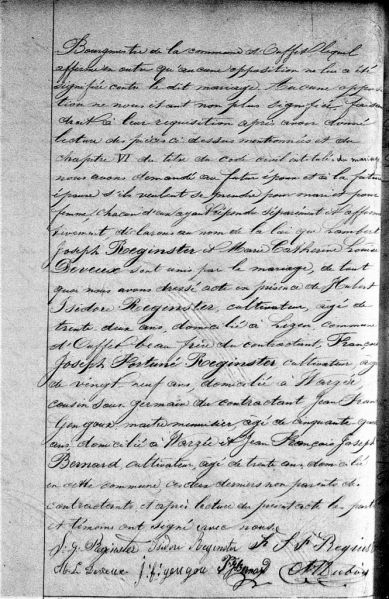 Bourgmestre de la commune d'Ouffet lequel
affirme en outre qu'aucune opposition ne lui a été
signifiée contre le dit mariage. Aucune oppo-
sition ne nous étant non plus signifiée, faisant
droit à leur requisition après avoir donné
lecture des pièces ci dessus mentionnées et du
chapitre VI du titre du code civil intitulé du mariage
nous avons demandé au futur époux et à la future
épouse s'ils veulent se prendre pour mari et pour
femme, chacun d'eux ayant répondu séparément et affirma-
tivement déclarons au nom de la loi que Lambert
Joseph Reginster et Marie Catherine Louise
Deveux sont unis par le mariage, de tout
quoi nous avons dressé acte en présence de Hubert
Isidore Reginster, cultivateur, agé de
trente deux ans, domicilié à commune
d'Ouffet beau frère du contractant, François
Joseph Fortuné Reginster cultivateur, agé
de vingt neuf ans, domicilié à Warzée
cousin sous germain du contractant Jean Fran
Gengoux maitre menuisier agé de cinquante quatre
ans, domicilié à Warzée et Jean François Joseph
Bernard, cultivateur, agé de trente ans, domicilié
en cette commune, ces deux derniers non parents des
contractants, et après lecture du présent acte les parties
et témoins ont signé avec nous.
J. G. Reginster Isidore Reginster F. J. F. Reginster
M. L. Deveux J. F. Gengoux Bernard Dubois